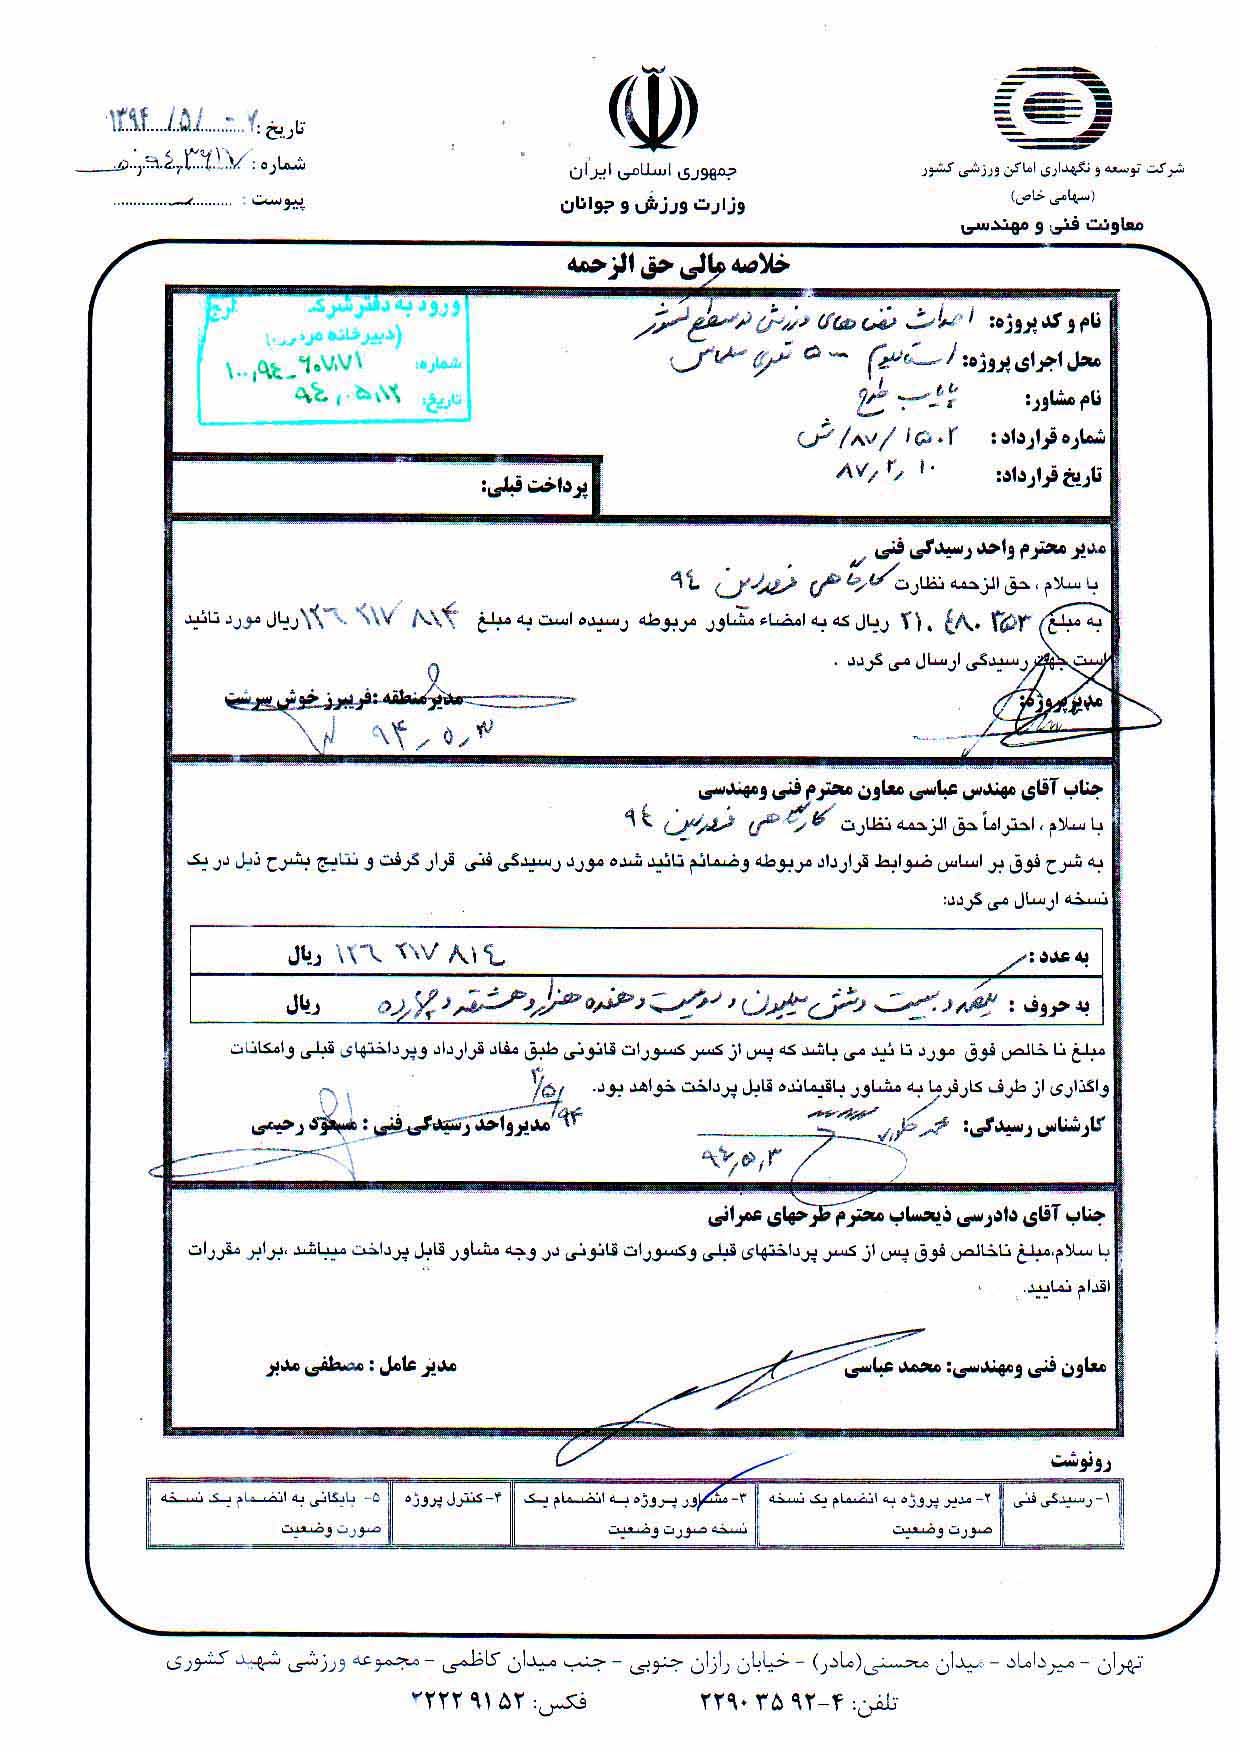 شرکت توسعه و نگهداری اماکن ورزشی کشور
(سهامی خاص)
معاونت فنی و مهندسی
جمهوری اسلامی ایران
وزارت ورزش و جوانان
تاریخ : ۱۳۹۴/۵/۰۲
شماره :
پیوست :
خلاصه مالی حق الزحمه
نام و کد پروژه: احداث فضاهای ورزشی در سطح کشور
محل اجرای پروژه: استادیوم ۵۰۰۰ نفری سلماس
نام مشاور: پایاب طرح
شماره قرارداد : ۱۵۰۲/۸۷/ش
تاریخ قرارداد: ۸۷٫۲٫۱۰
ورود به دفتر شرکت
(دبیرخانه مرکزی)
شماره: ۱۰۰٫۹٤-۶۰۷۷۱
تاریخ: ۹٤٫۰۵٫۱۲
پرداخت قبلی:
مدیر محترم واحد رسیدگی فنی
با سلام ، حق الزحمه نظارت کارگاهی فروردین ۹٤
به مبلغ ۲۱۰ ٤۸۰ ۳۵۳ ریال که به امضاء مشاور مربوطه رسیده است به مبلغ ۱۲۶ ۲۱۷ ۸۱۴ ریال مورد تائید
است جهت رسیدگی ارسال می گردد .
مدیرپروژه:
مدیرمنطقه :فریبرز خوش سرشت
۹۴٫۵٫۳
جناب آقای مهندس عباسی معاون محترم فنی ومهندسی
با سلام ، احتراماً حق الزحمه نظارت کارگاهی فروردین ۹٤
به شرح فوق بر اساس ضوابط قرارداد مربوطه وضمائم تائید شده مورد رسیدگی فنی قرار گرفت و نتایج بشرح ذیل در یک
نسخه ارسال می گردد:
به عدد : ۱۲۶ ۲۱۷ ۸۱٤ ریال
بد حروف : یکصد و بیست و شش میلیون و دویست و هفده هزار و هشتصد و چهارده ریال
مبلغ نا خالص فوق مورد تا ئید می باشد که پس از کسر کسورات قانونی طبق مفاد قرارداد وپرداختهای قبلی وامکانات
واگذاری از طرف کارفرما به مشاور باقیمانده قابل پرداخت خواهد بود.
کارشناس رسیدگی:
۹٤٫۵٫۳
مدیرواحد رسیدگی فنی : مسعود رحیمی
۹۴/۵/۳
جناب آقای دادرسی ذیحساب محترم طرحهای عمرانی
با سلام،مبلغ ناخالص فوق پس از کسر پرداختهای قبلی وکسورات قانونی در وجه مشاور قابل پرداخت میباشد ،برابر مقررات
اقدام نمایید.
معاون فنی ومهندسی: محمد عباسی
مدیر عامل : مصطفی مدبر
رونوشت
۱- رسیدگی فنی
۲- مدیر پروژه به انضمام یک نسخه
صورت وضعیت
۳- مشاور پروژه به انضمام یک
نسخه صورت وضعیت
۴- کنترل پروژه
۵- بایگانی به انضمام یک نسخه
صورت وضعیت
تهران - میرداماد - میدان محسنی(مادر) - خیابان رازان جنوبی - جنب میدان کاظمی - مجموعه ورزشی شهید کشوری
تلفن: ۴-۲۲۹۰۳۵۹۲ فکس: ۲۲۲۲۹۱۵۲